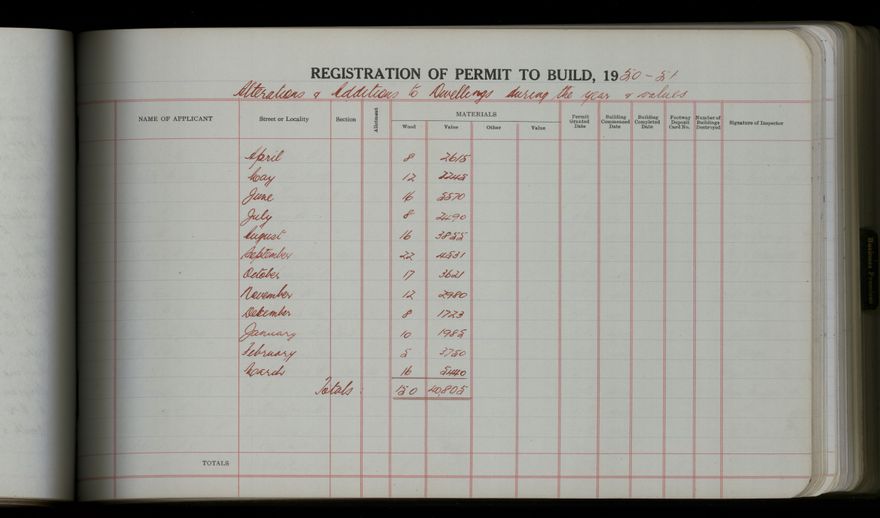 REGISTRATION OF PERMIT TO BUILD, 1950-51
Alterations & Additions to Dwellings during the year & values
NAME OF APPLICANT Street or Locality Section Allotment MATERIALS Permit Granted Date Building Commenced Date Building Completed Date Footway Deposit Card No. Number of Buildings Destroyed Signature of Inspector
Wood Value Other Value
April 8 2615
May 12 2245
June 16 5570
July 8 2490
August 16 3855
September 22 4531
October 17 3621
November 12 2980
December 8 1723
January 10 1985
February 5 3750
March 16 5440
Totals: 150 40,805
TOTALS